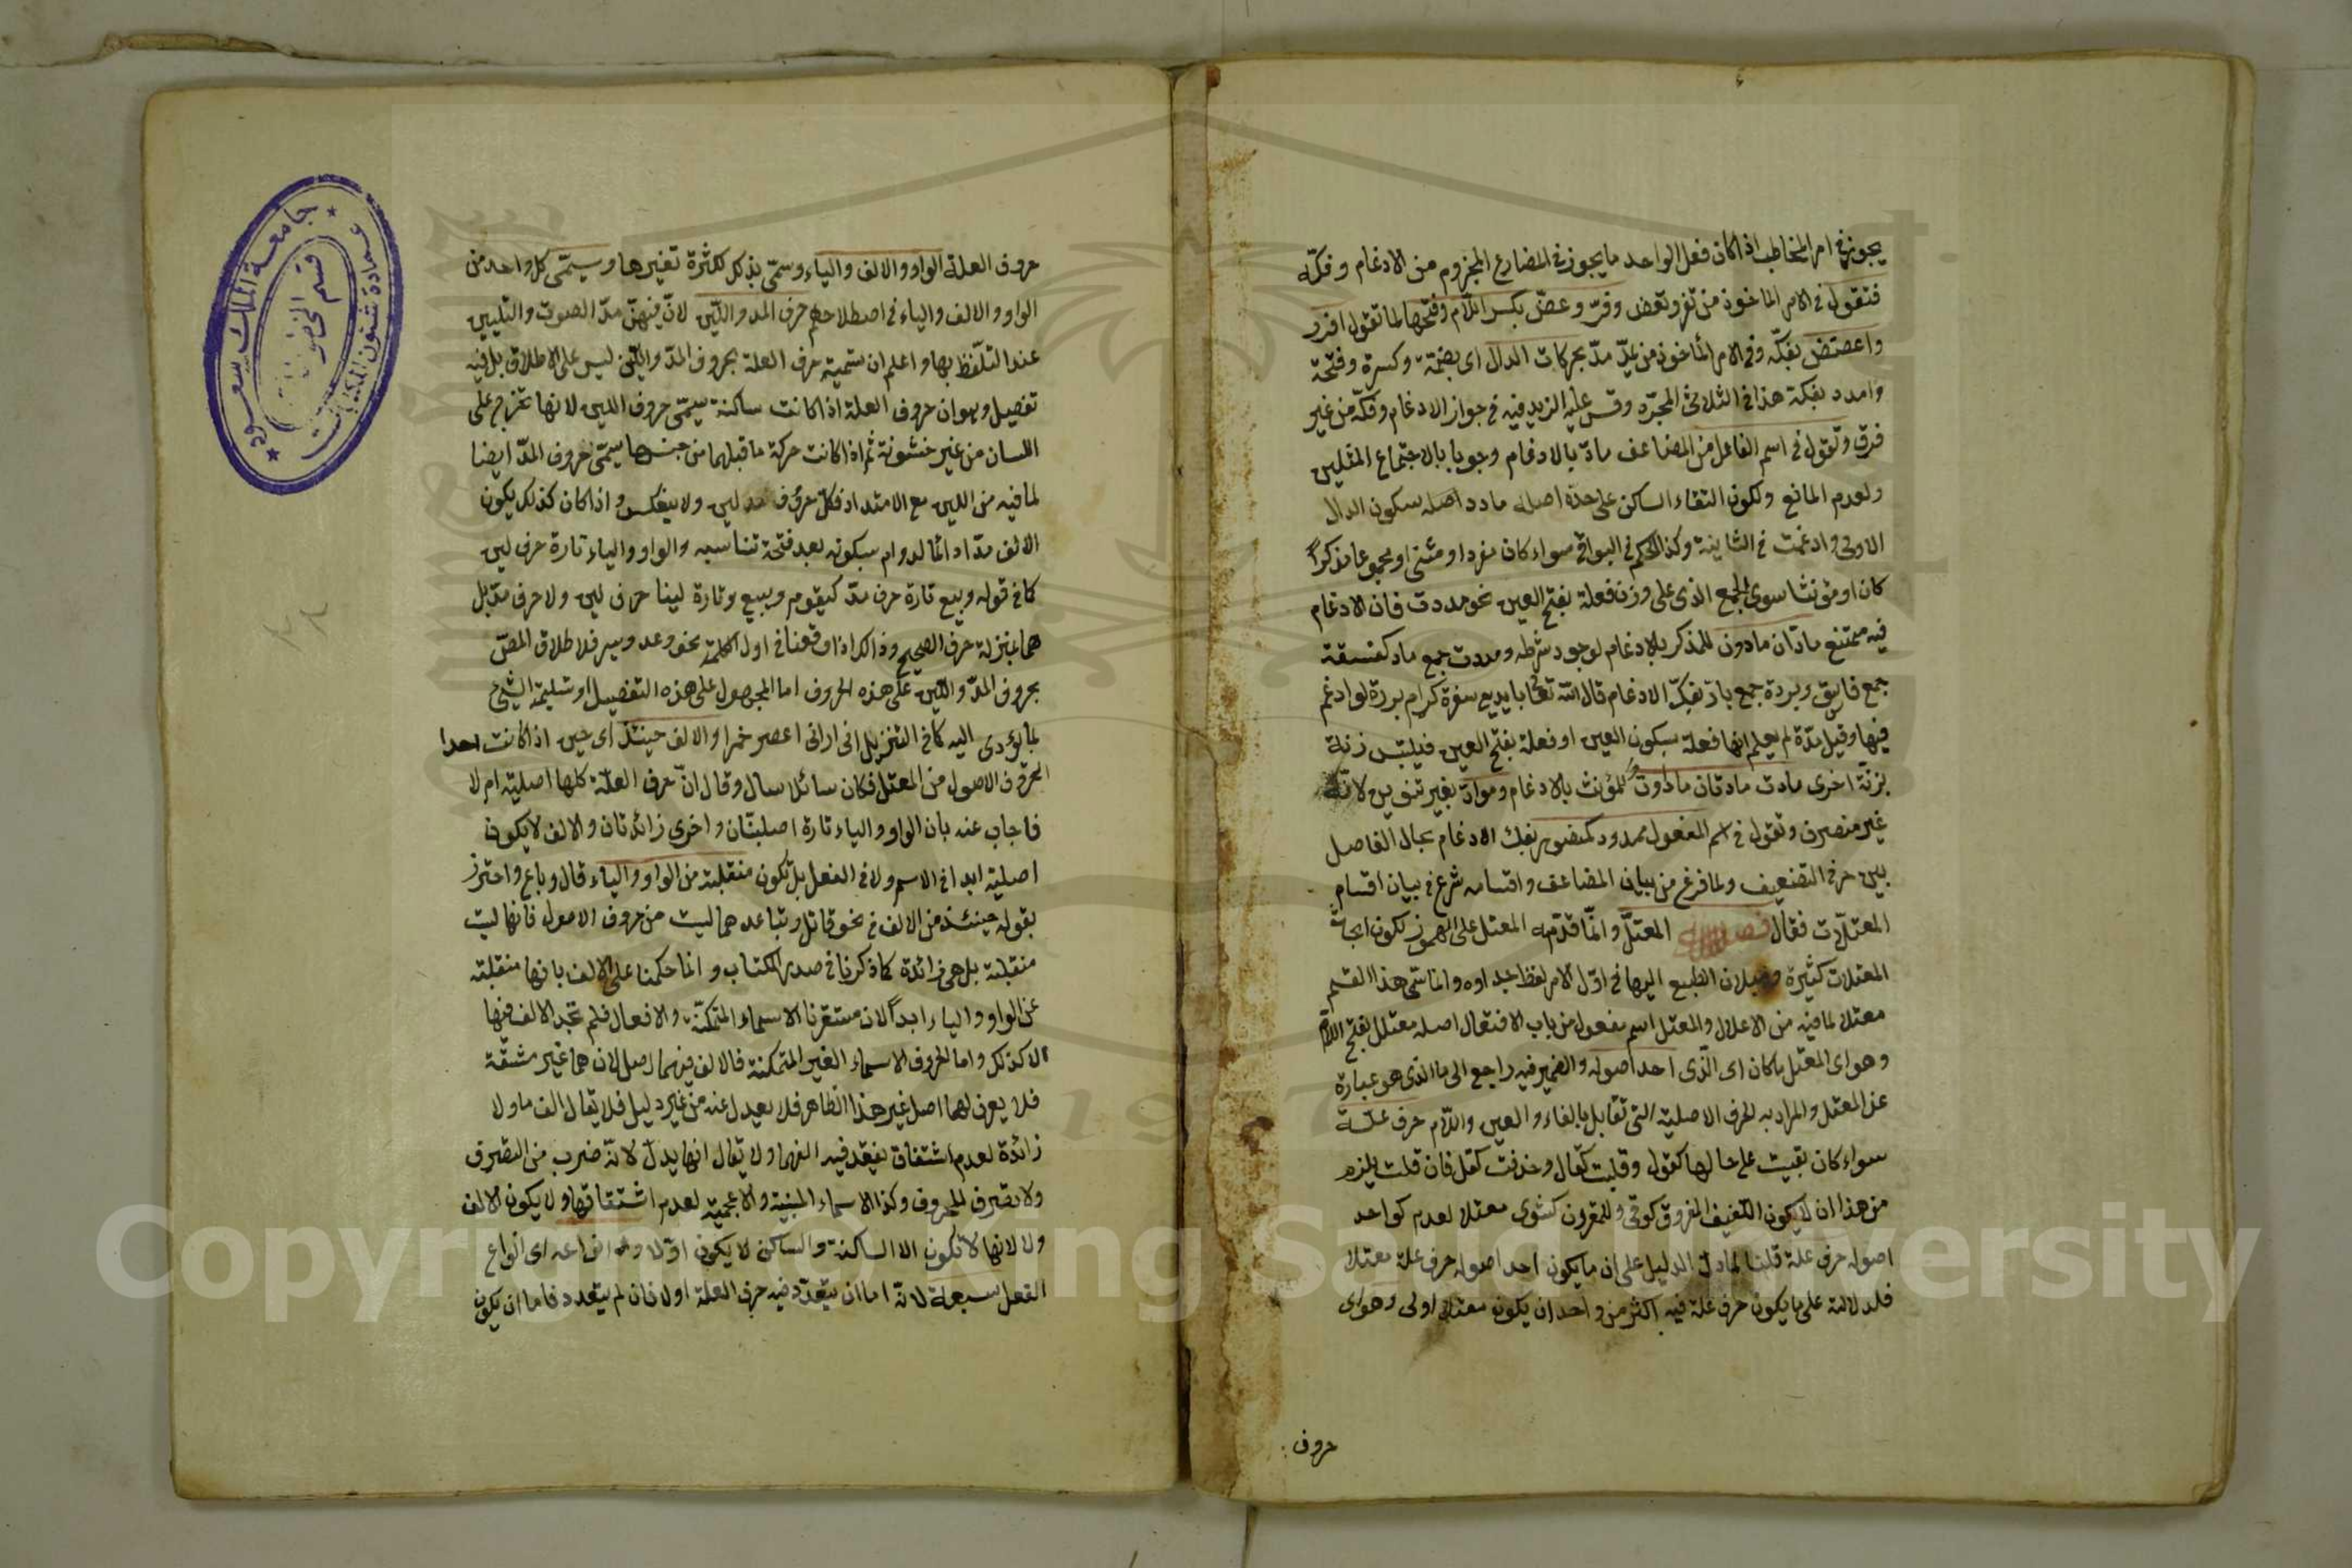 يجوز في امر المخاطب اذا كان فعل الواحد ما يجوز في المضارع المجزوم من الادغام و فكّه
فتقول في الامر الماخوذ من تفر وتعض وفرّ وعضّ بكسر اللّام وفتحها لما تقول افرر
واعضض بفكّه وفي الامر الماخوذ من يمدّ مدّ بحركات الدال اى بضمّة وكسرة وفتحة
وامدد بفكّه هذا في الثلاثى المجرّد وقس عليه المزيد فيه في جواز الادغام وفكّه من غير
فرق وتقول في اسم الفاعل من المضاعف مادّ بالادغام وجوبا بالاجتماع المثلين
ولعدم المانع ولكون التقاء الساكن على حدّه اصله مادد اصله سكون الدال
الاولى وادغمت في الثانية وكذا الحكم في البواقى سواء كان مفردا او مثنى او مجموعا مذكرًا
كان او مؤنثا سوى الجمع الذى على وزن فعلة بفتح العين نحو مددت فان الادغام
فيه ممتنع مادّان مادّون للمذكر بالادغام لوجود شرطه ومددت جمع مادّ كفسقة
جمع فاسق وبررة جمع بارّ بفكّ الادغام قال الله تعالى بايدى سفرة كرام بررة لو ادغم
فيها وقيل مدّة لم يعلم انها فعلة بسكون العين او فعلة بفتح العين فيلتبس زنة
بزنة اخرى مادّة مادّتان مادّات للمؤنث بالادغام وموادّ بغير تنوين لانّه
غير منصرف وتقول في اسم المفعول ممدود كمنصور بفك الادغام بحال الفاصل
بين حرفى التضعيف ولما فرغ من بيان المضاعف واقسامه شرع في بيان اقسام
المعتلّات فقال فصل المعتلّ وانّما قدّمه المعتل على المهموز لكون ابحاث
المعتلات كثيرة وميلان الطبع اليها في اوّل الامر لفظ جداوه وانما سمّى هذا القسم
معتلا لما فيه من الاعلال والمعتل اسم مفعول من باب الافتعال اصله معتلل بفتح اللام
وهو اى المعتل ما كان اى الّذى احد اصوله والضمير فيه راجع الى ما الذى هو عبارة
عن المعتل والمراد به الحرف الاصلية التى تقابل بالفاء والعين واللّام حرف علّة
سواء كان بقيت على حالها كقول وقلبت كقال وحذفت كقل فان قلت يلزم
من هذا ان لا يكون اللفيف المفروق كوقى والمقرون كشوى معتلا لعدم كواحد
اصوله حرف علة قلنا لما دلّ الدليل على ان ما يكون احد اصوله حرف علة معتلا
فلدلالته على ما يكون حرف علة فيه اكثر من واحد ان يكون معتلا اولى وهو اى
حروف
حروف العلة الواو والالف والياء وسمّى بذلك لكثرة تغيرها وسيمّى كل واحد من
الواو والالف والياء في اصطلاحهم حرف المد واللّين لانّ فيهنّ مدّ الصوت والتليين
عند التلفّظ بها واعلم ان تسمية حرف العلة بحروف المدّ واللّين ليس على الاطلاق بل فيه
تفصيل وهو ان حروف العلة اذا كانت ساكنة سيمّى حروف اللين لانها تخرج على
اللسان من غير خشونة ثم اذا كانت حركة ما قبلهما من جنسها سيمّى حروف المدّ ايضا
لما فيه من اللين مع الامتداد فكلّ حروف مد لين ولا ينعكس و اذا كان كذلك يكون
الالف مدّا دائما لدوام سكونه بعد فتحة تناسبه والواو والياء تارة حرف لين
كما في قوله وبيع تارة حرف مدّ كيقوم ويبيع وتارة لينا حرف لين ولا حرف مدّ بل
هما بمنزلة حرف الصحيح وذالك اذا وقعتا في اول الكلمة نحو وعد ويسر فلا طلاق المصّ
بحروف المدّ واللّين على هذه الحروف اما المحمول على هذه التفصيل او تسليمة الشئ
بما يؤدى اليه كما في التنزيل انى ارانى اعصر خمرا والالف حينئذ اى حين اذا كانت احدا
الحروف الاصول من المعتل فكان سائلا سال وقال انّ حرف العلّة كلها اصليّة ام لا
فاجاب عنه بان الواو والياء تارة اصليتان واخرى زائدتان والالف لا يكون
اصليّة ابدا في الاسم ولا في الفعل بل تكون منقلبة من الواو والياء قال وباع واحترز
بقوله حينئذ من الالف في نحو قاتل وتباعد هما ليست من حروف الاصول فانها ليت
منقلبة بل هى زائدة كما ذكرنا في صدر الكتاب وانما حكمنا على الالف بانها منقلبته
عن الواو والياء ابدًا لان مستقرنا الاسماء المتمكنّة والافعال فلم تجد الالف فيها
الا كذلك واما الحروف الاسماء الغير المتمكنة فالالف فيهما اصل لان هما غير مشتقّة
فلا يعرف لهما اصل غير هذا الظاهر فلا يعدل عنه من غير دليل فلا يقال الف ما ولا
زائدة لعدم اشتقاق يفقد فيه الفهما ولا يقال انها بدل لانّه ضرب من التصرف
ولا تصرف للحروف وكذا الاسماء المبنية والاعجمية لعدم اشتقاقها ولا يكون الالف
ولا لانها لا تكون الا الساكنة والساكن لا يكون اوّلا وانواعه اى انواع
الفعل سبعة لانّه اما ان يتعدّد فيه حرف العلة اولا فان لم يتعدد فاما ان يكون
جامعة الملك سعود
عمادة شئون المكتبات
قسم المخطوطات
٣٨
Copyright © King Saud University
1957